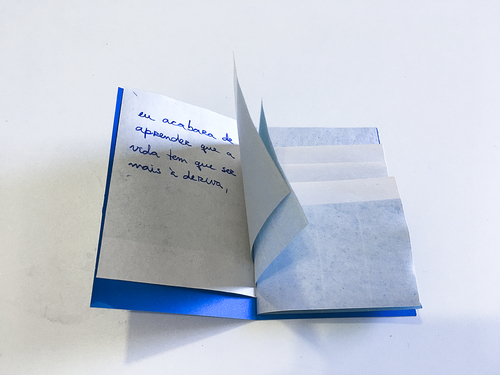 eu acabara de
aprender que a
vida tem que ser
mais à deriva,